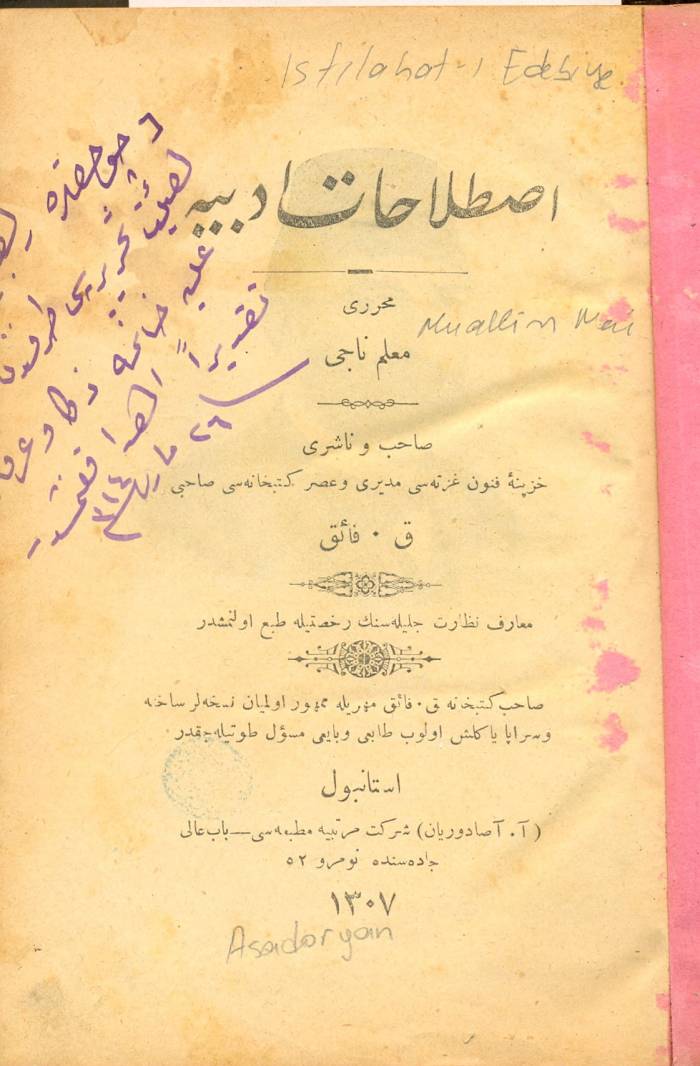 Istılahat-ı Edebiye
اصطلاحات ادبیه
محرری
معلم ناجی
Muallim Naci
صاحب و ناشری
خزینهٔ فنون غزته‌سی مدیری و عصر کتبخانه‌سی صاحبی
ق ٠ فائق
معارف نظارت جلیله‌سنك رخصتیله طبع اولنمشدر
صاحب کتبخانه ق ٠ فائق مهریله ممهور اولمیان نسخه‌لر ساخته
وسراپا یاكلش اولوب طابعی وبایعی مسؤل طوتیله‌جقدر
استانبول
(آ ٠ آصادوریان) شركت مرتبیه مطبعه‌سی — باب عالی
جاده‌سنده نومرو ٥٢
١٣٠٧
Asadoryan